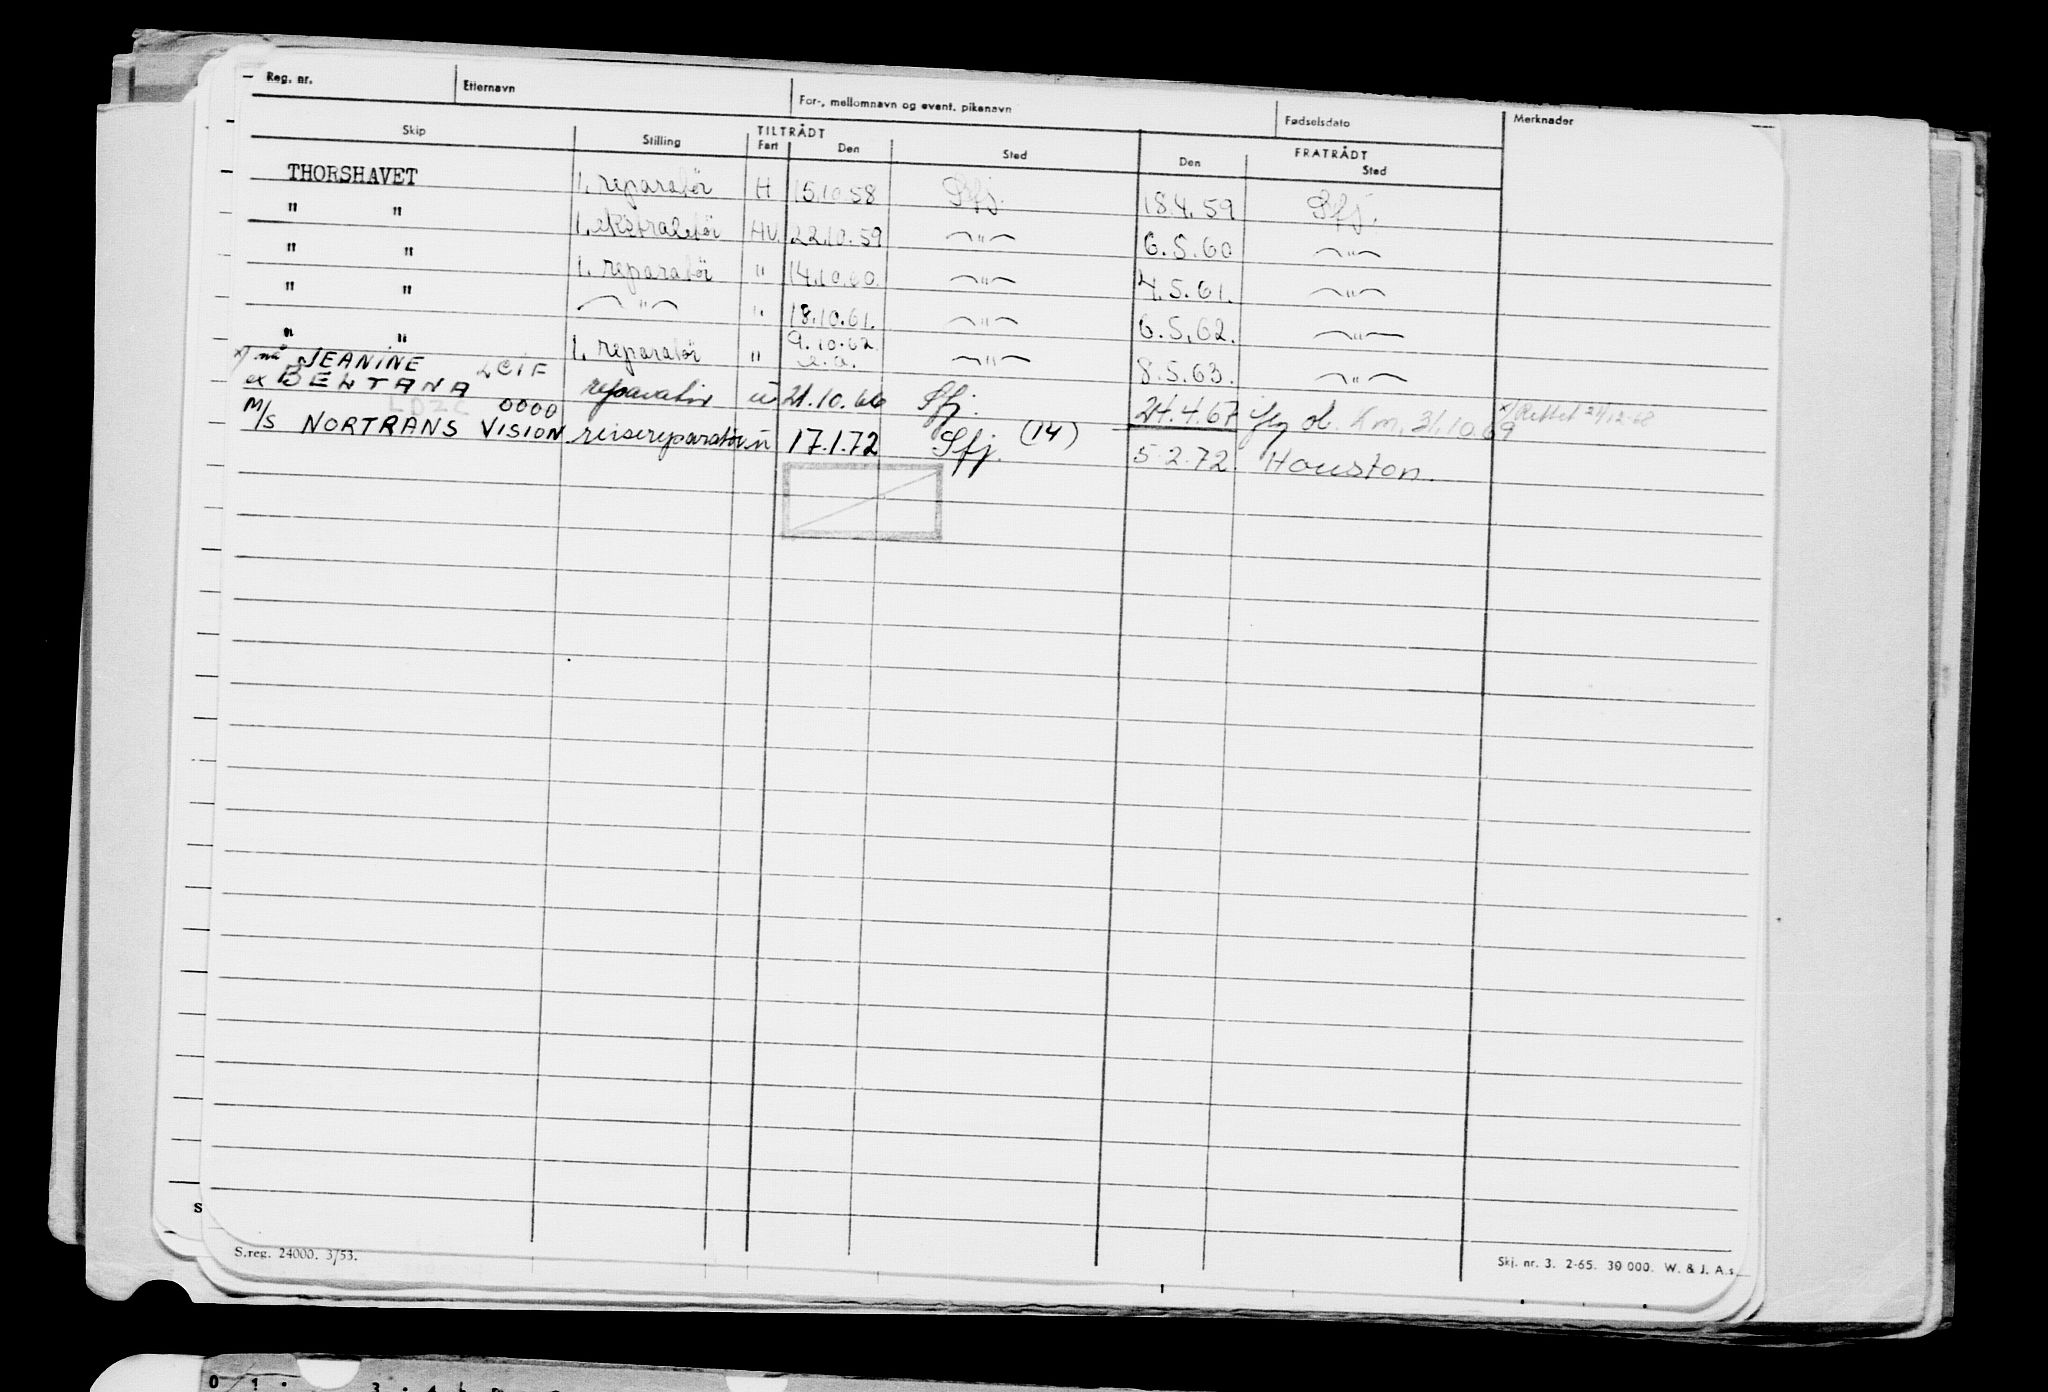 Reg. nr. Etternavn For-, mellomnavn og event. pikenavn Fødselsdato Merknader
TILTRÅDT FRATRÅDT
Skip Stilling Fart Den Sted Den Sted
THORSHAVET 1. reparatør H 15.10.58 Sfj. 18.4.59 Sfj.
" " 1. HV. 22.10.59 " 6.5.60 "
" " 1. reparatør " 14.10.60. " 4.5.61. "
" " " " 18.10.61. " 6.5.62. "
" " 1. reparatør " 9.10.62. " 8.5.63. "
x) nå JEANINE LCIF
ex BELTANA reparatør u 21.10.66 Sfj. 24.4.67 31.10.69 x) Rettet 24/12-68
LDZC 0000
M/S NORTRANS VISION reisereparatør u 17.1.72 Sfj. (14) 5.2.72. Houston.
S.reg. 24000. 3/53.
Skj. nr. 3. 2-65. 30 000. W. & J. A.s
0 1 3 4